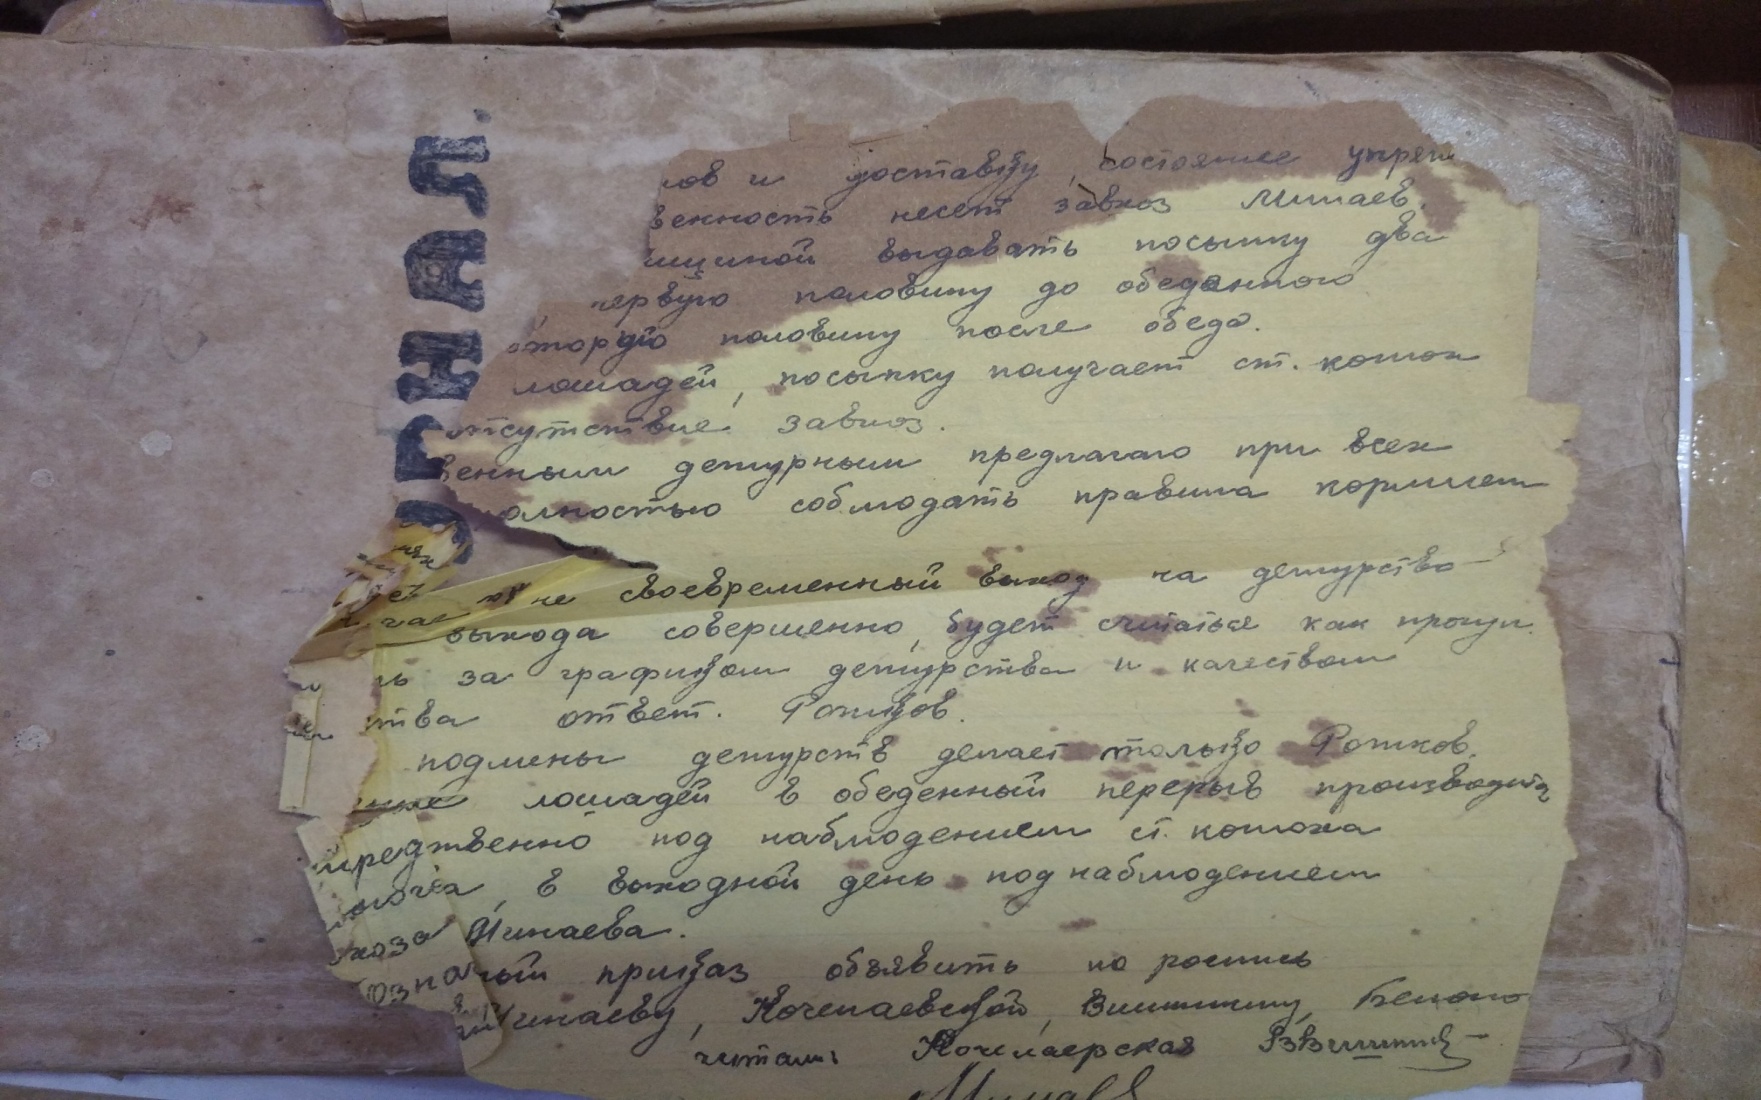 УРНАЛ.
ов и доставку, состояние упряж
венность несет завхоз Минаев.
щиной выдавать посыпку два
первую половину до обеданного
вторую половину после обеда.
лошадей, посыпку получает ст. конюх
отсутствие завхоз.
венным дежурным предлагаю при всех
олностью соблюдать правила кормлен
не своевременный выход на дежурство
выхода совершенно, будет считаться как прогул.
ь за графиком дежурства и качеством
тва ответ. Рожков.
подмены дежурств делает только Рожков.
лошадей в обеденный перерыв производить
средственно под наблюдением ст. конюха
в выходной день под наблюдением
хоза Минаева.
означ ный приказ объявить по роспись
Минаеву, Кочелаевской, Вишникину,
читали Кочелаевская
Минаев